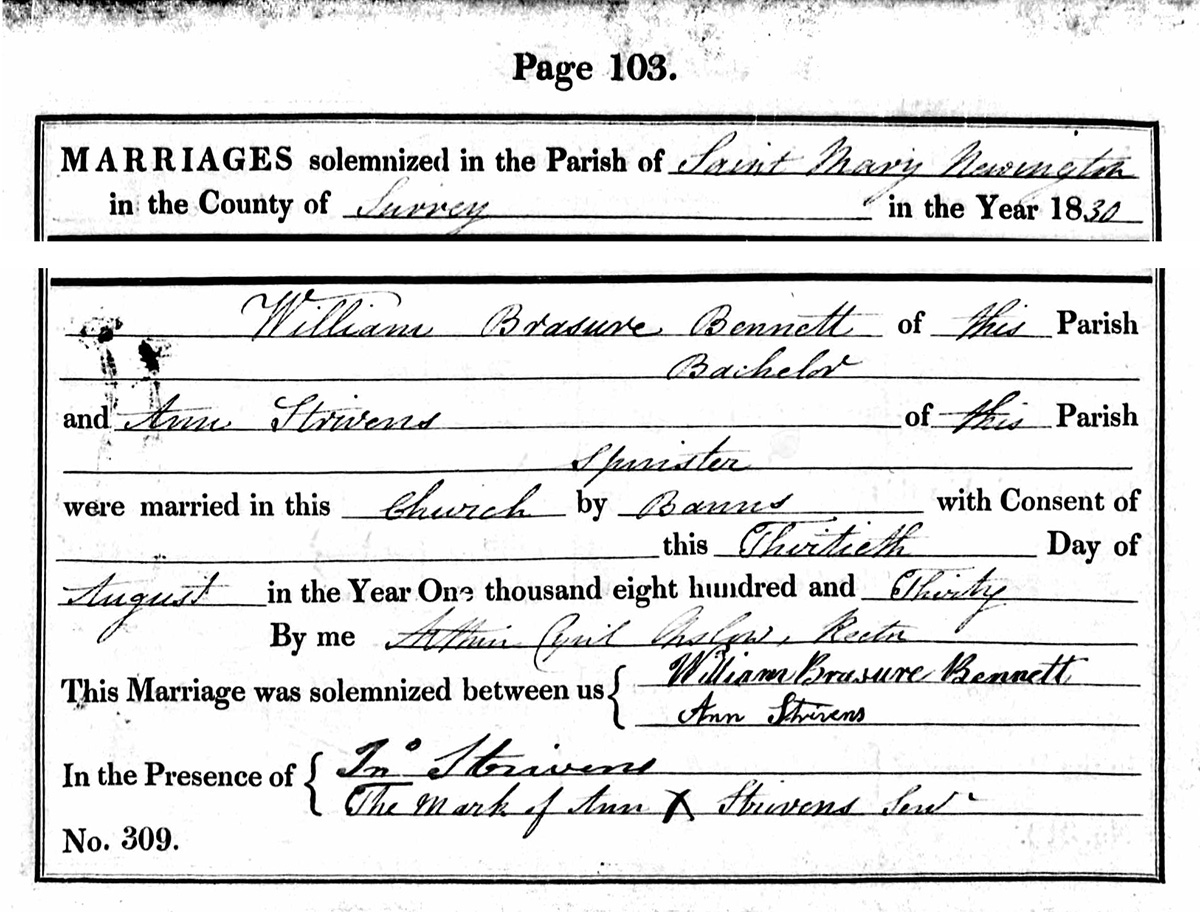 Page 103.
MARRIAGES solemnized in the Parish of Saint Mary Newington
in the County of Surrey in the Year 1830
William Brasure Bennett of this Parish
Bachelor
and Ann Strivens of this Parish
Spinster
were married in this Church by Banns with Consent of
this Thirtieth Day of
August in the Year One thousand eight hundred and Thirty
By me Arthur Cyril Onslow, Rector
This Marriage was solemnized between us { William Brasure Bennett
Ann Strivens
In the Presence of { Jno Strivens
The Mark of Ann X Strivens Senr
No. 309.